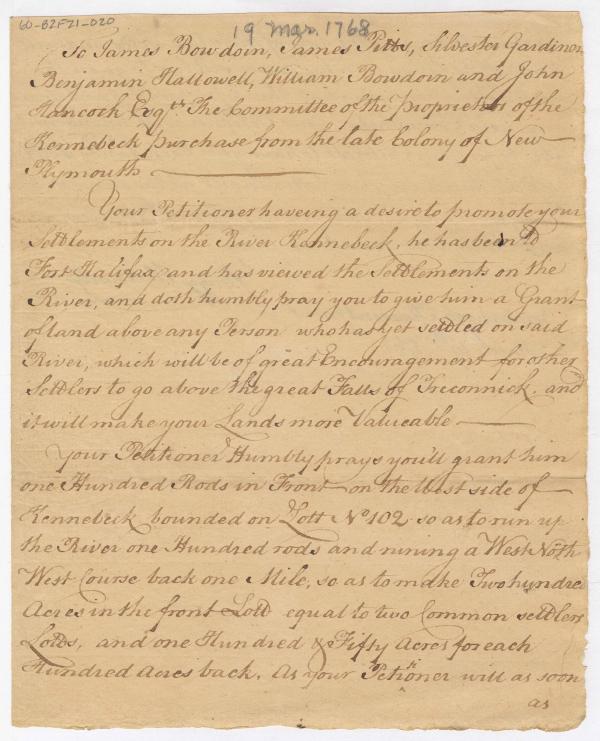 60-B2F21-020
19 Mar. 1768
To James Bowdoin, James Pitts, Silvester Gardiner
Benjamin Hallowell, William Bowdoin and John
Hancock Esqrs. The Committee of the Proprietors of the
Kennebeck purchase from the late Colony of New
Plymouth
Your Petitioner haveing a desire to promote your
Settlements on the River Kannebeck, he has been to
Fort Halifax and has viewed the Settlements on the
River, and doth humbly pray you to give him a Grant
of land above any Person who has yet settled on said
River, which will be of great Encouragement for other
Settlers to go above the great Falls of Treconnick. and
it will make your Lands more Valueable
Your Petitioner Humbly prays you'll grant him
one Hundred Rods in Front on the West side of
Kennebeck bounded on Lott No 102 so as to run up
the River one Hundred rods and runing a West North
West Course back one Mile, so as to make Two hundred
Acres in the front Lott equal to two Common settlers
Lotts, and one Hundred & Fifty Acres for each
Hundred Acres back. As your Petitioner will as soon
as